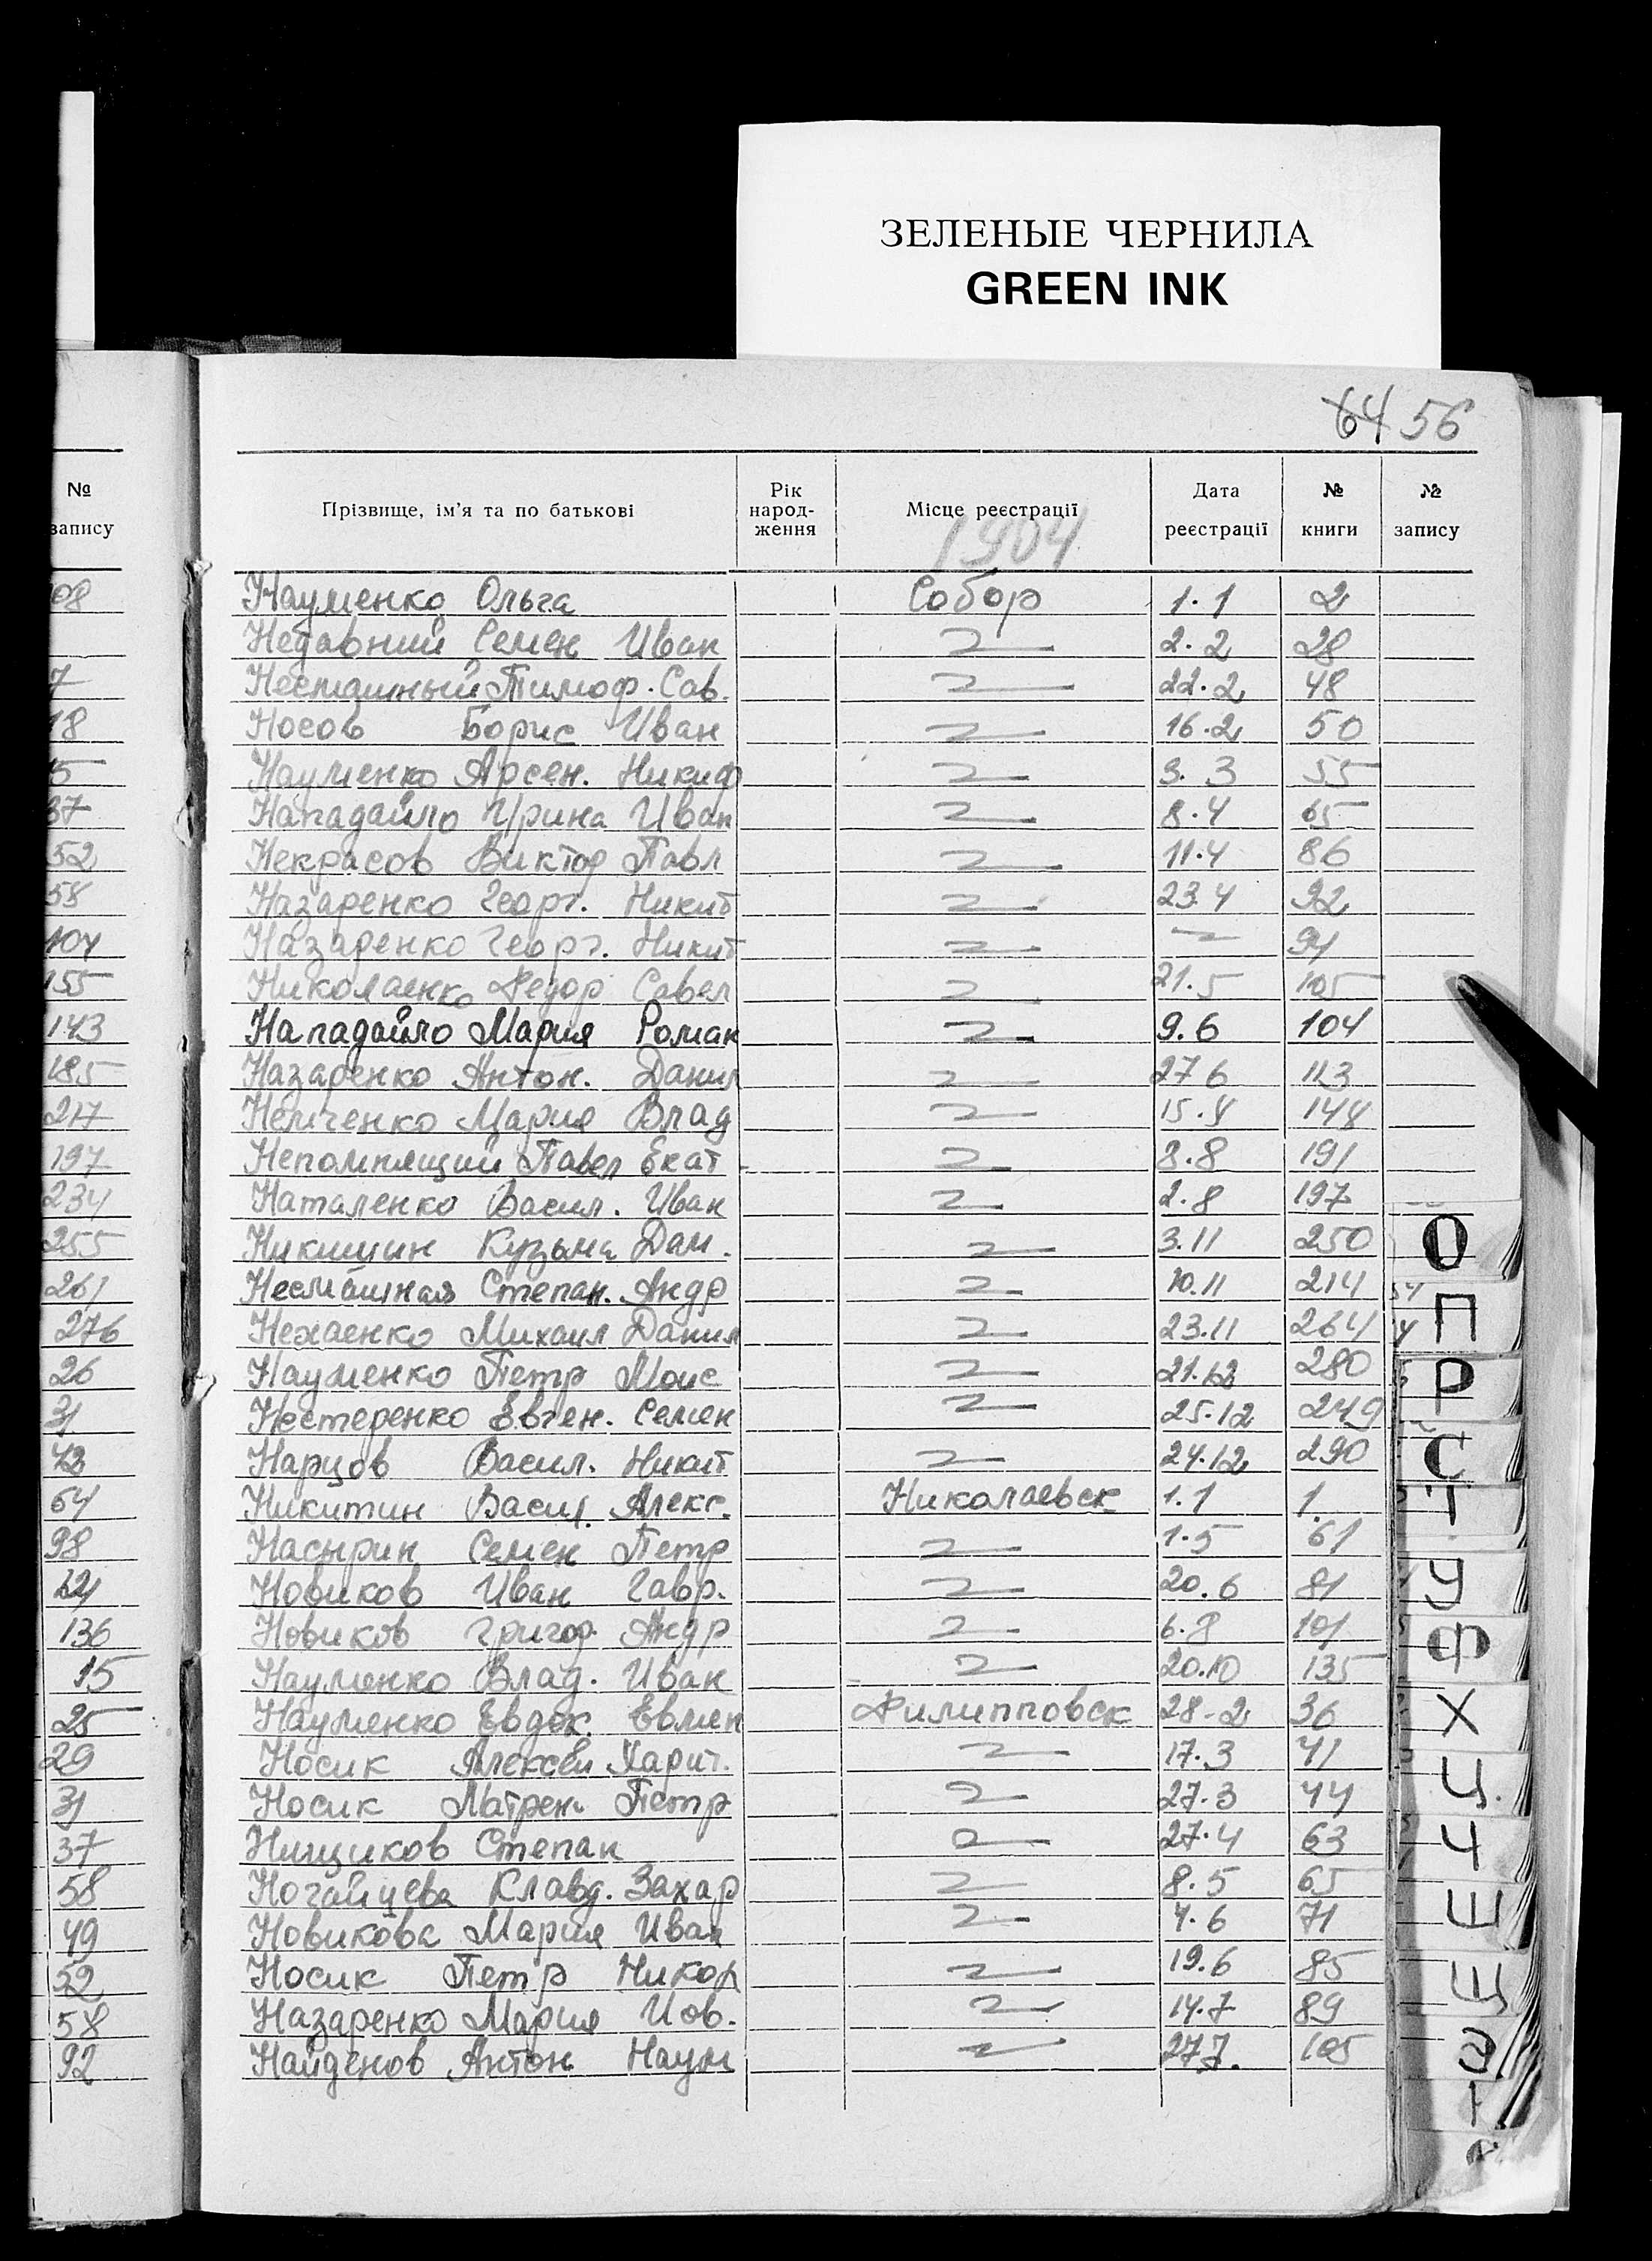 ЗЕЛЕНЫЕ ЧЕРНИЛА
GREEN INK
64 56
№ запису
Прізвище, ім'я та по батькові
Рік народ-ження
Місце реєстрації
Дата реєстрації
№ книги
№ запису
1904
08 Науменко Ольга Собор 1.1 2
Недавний Семен Иван 2.2 28
7 Несмашный Тимоф. Сав. 22.2 48
18 Носов Борис Иван 16.2 50
15 Науменко Арсен. Никиф 3.3 55
37 Нападайло Ирина Иван 8.4 65
52 Некрасов Виктор Павл 11.4 86
58 Назаренко Георг. Никит 23.4 92
104 Назаренко Георг. Никит 94
155 Николаенко Федор Савел 21.5 105
143 Нападайло Мария Роман 9.6 104
185 Назаренко Антон. Данил 27 6 113
217 Немченко Мария Влад 15.8 148
197 Непомнящий Павел Екат 8.8 191
234 Наталенко Васил. Иван 2.8 197
255 Никишин Кузьма Дам. 3.11 250
261 Несмашная Степан. Андр 10.11 214
276 Нехаенко Михаил Данил 23.11 264
26 Науменко Петр Моис 21.12 280
31 Нестеренко Евген. Семен 25.12 249
43 Нарцов Васил. Никит 24.12 290
64 Никитин Васил. Алекс. Николаевск 1.1 1
98 Насырин Семен Петр 1.5 61
Новиков Иван Гавр. 20.6 81
136 Новиков Григор. Андр 6.8 101
15 Науменко Влад. Иван 20.10 135
25 Науменко Евдок. Евмен Филипповск 28.2 36
29 Носик Алексей Харит. 17.3 41
31 Носик Матрен. Петр 27.3 44
37 Нищиков Степан 27.4 63
58 Ногайцева Клавд. Захар 8.5 65
49 Новикова Мария Иван 4.6 71
52 Носик Петр Никол 19.6 85
58 Назаренко Мария Иов. 14.7 89
92 Найденов Антон Наум 27 7. 105
О
П
Р
С
Т
У
Ф
Х
Ц
Ч
Ш
Щ